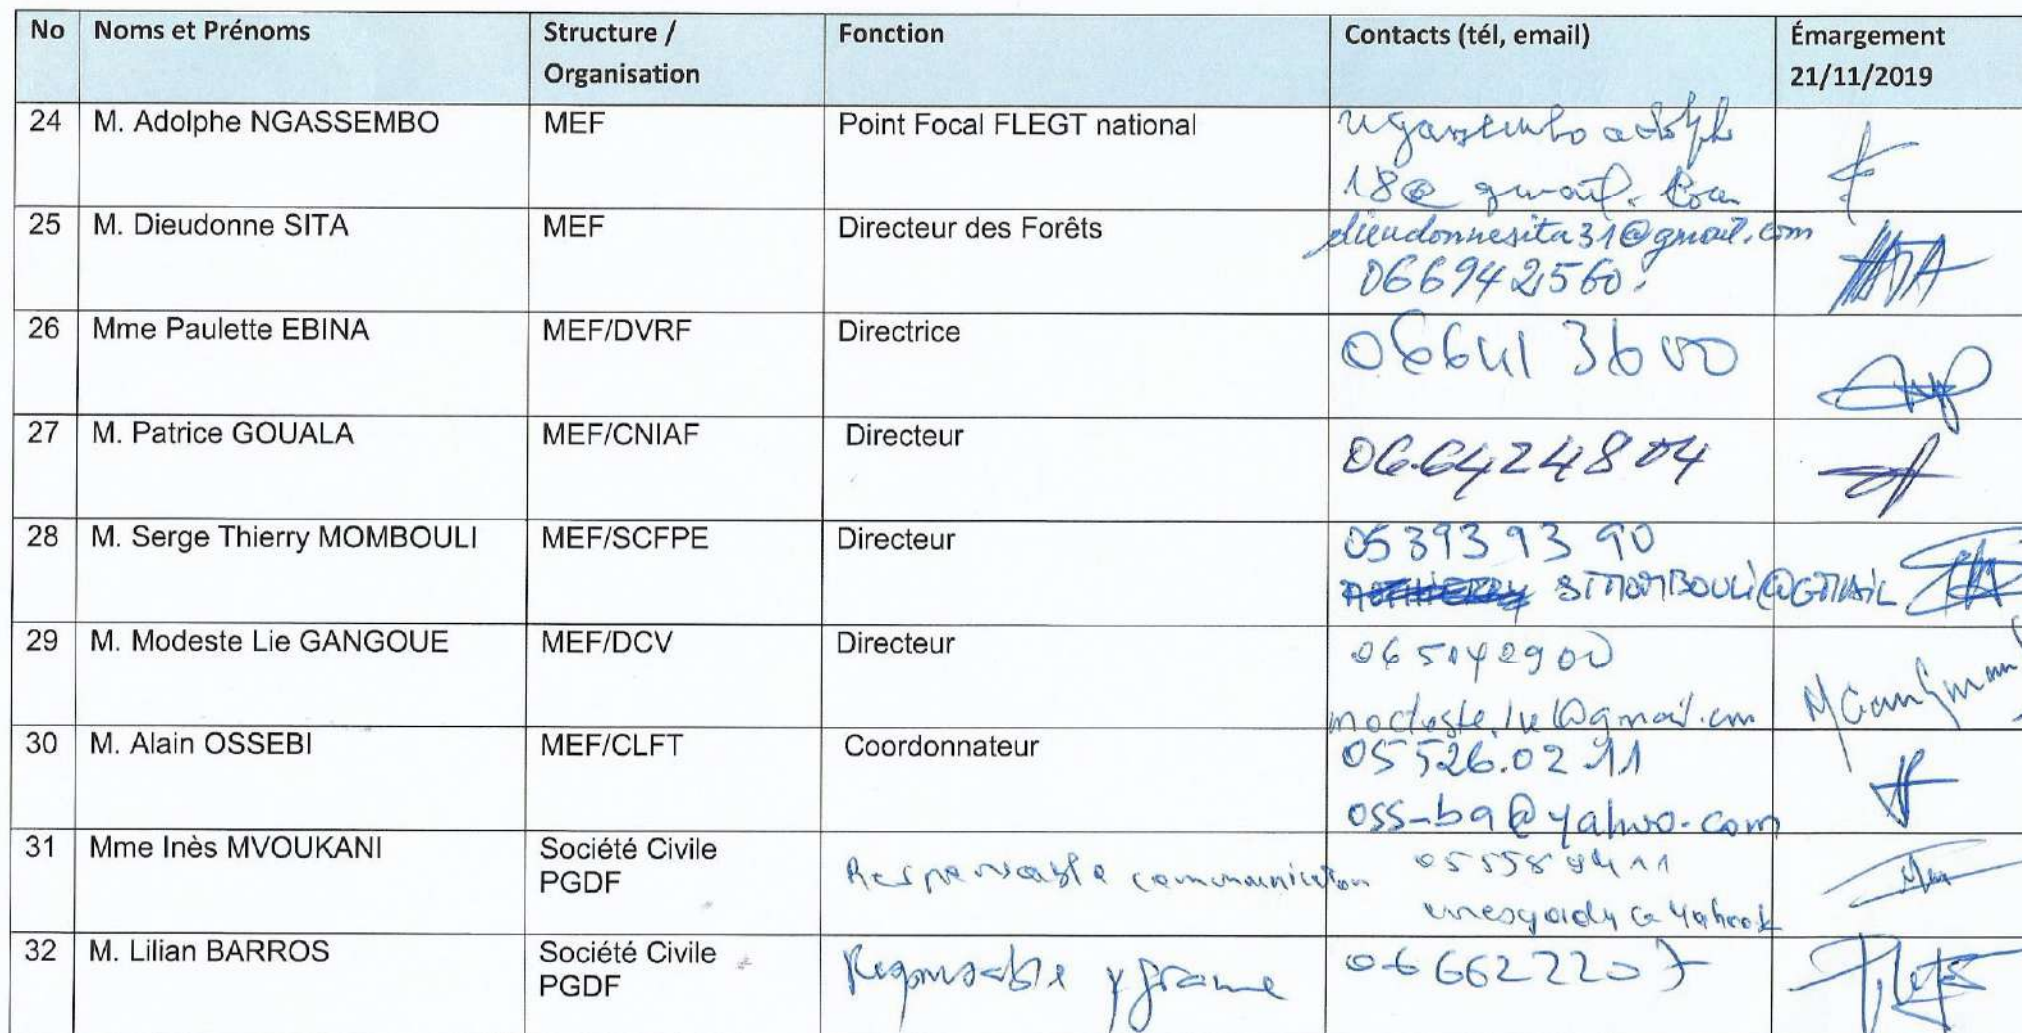 No Noms et Prénoms Structure / Fonction Contacts (tél, email) Émargement
Organisation 21/11/2019
24 M. Adolphe NGASSEMBO MEF Point Focal FLEGT national ngassembo adolphe
18@gmail.com
25 M. Dieudonne SITA MEF Directeur des Forêts dieudonnesita31@gmail.com
066942560
26 Mme Paulette EBINA MEF/DVRF Directrice
27 M. Patrice GOUALA MEF/CNIAF Directeur 06.6424804
28 M. Serge Thierry MOMBOULI MEF/SCFPE Directeur 05393 93 90
STMOMBOULI@GMAIL
29 M. Modeste Lie GANGOUE MEF/DCV Directeur 065042900
modeste.lie@gmail.com
30 M. Alain OSSEBI MEF/CLFT Coordonnateur 05526.02 11
oss_ba@yahoo.com
31 Mme Inès MVOUKANI Société Civile Responsable communication
PGDF
32 M. Lilian BARROS Société Civile Responsable 066622207
PGDF